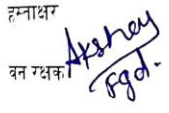 हस्ताक्षर
वन रक्षक Akshey